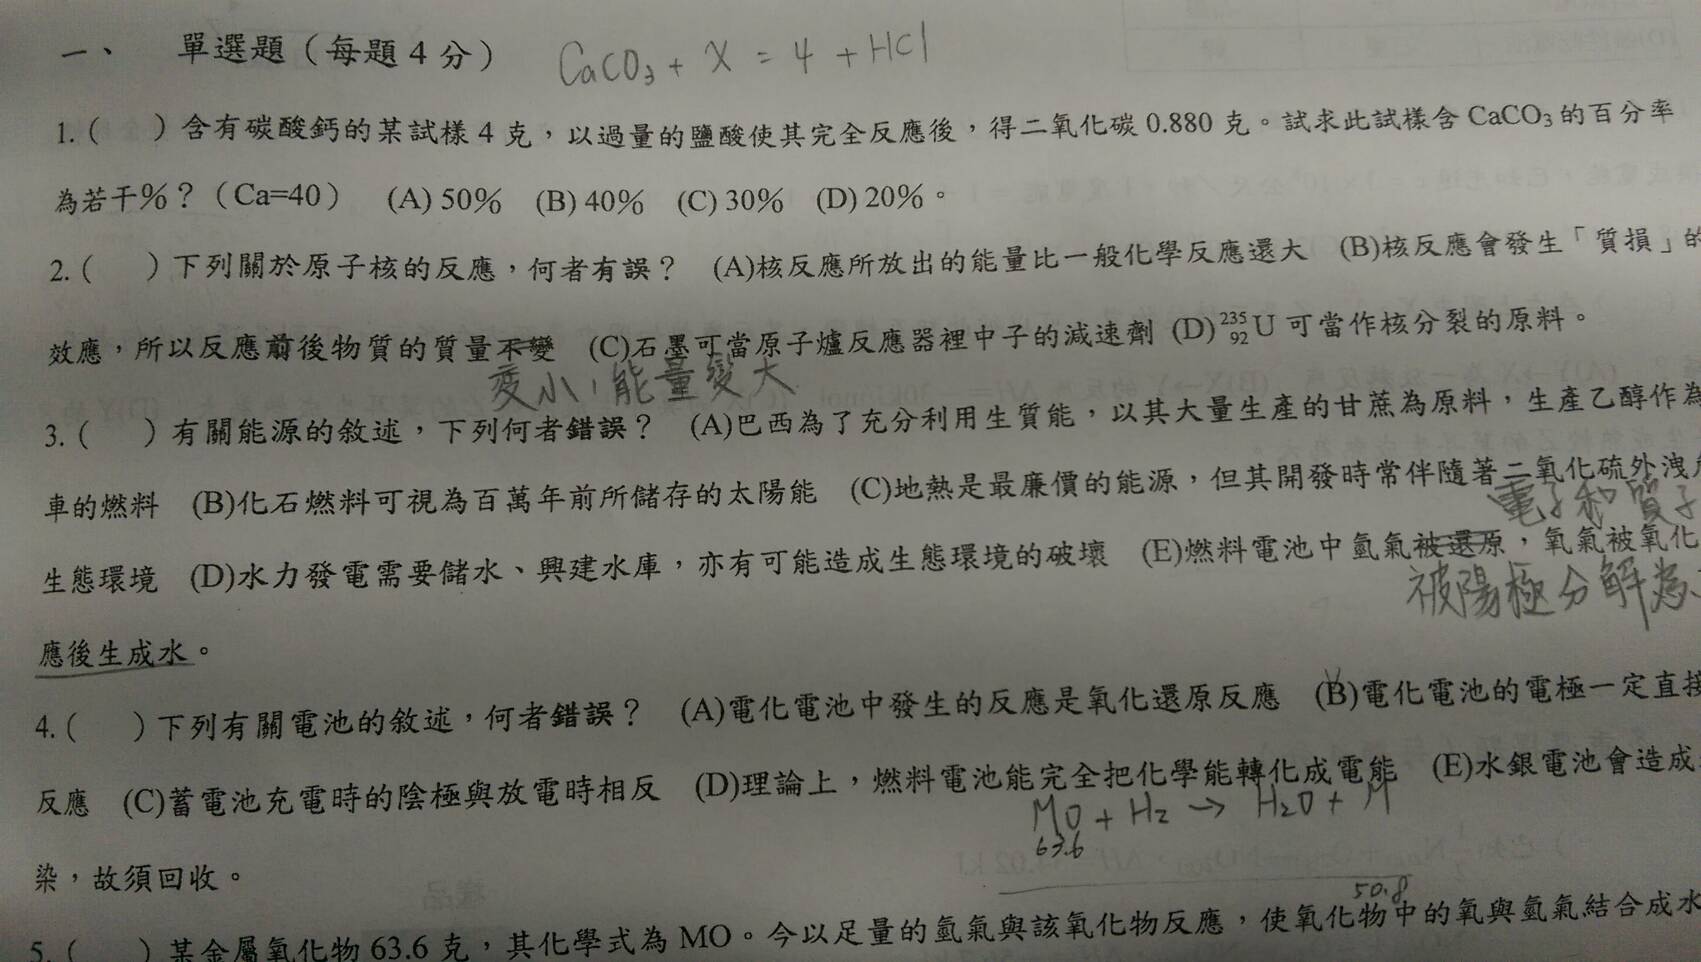 一、 單選題（每題 4 分） CaCO₃ + X = 4 + HCl
1. (　) 含有碳酸鈣的某試樣 4 克，以過量的鹽酸使其完全反應後，得二氧化碳 0.880 克。試求此試樣含 CaCO₃ 的百分率
為若干％？（Ca=40） (A) 50％ (B) 40％ (C) 30％ (D) 20％。
2. (　) 下列關於原子核的反應，何者有誤？ (A)核反應所放出的能量比一般化學反應還大 (B)核反應會發生「質損」的
效應，所以反應前後物質的質量不變 (C)石墨可當原子爐反應器裡中子的減速劑 (D) ²³⁵₉₂U 可當作核分裂的原料。
變小，能量變大
3. (　) 有關能源的敘述，下列何者錯誤？ (A)巴西為了充分利用生質能，以其大量生產的甘蔗為原料，生產乙醇作為
車的燃料 (B)化石燃料可視為百萬年前所儲存的太陽能 (C)地熱是最廉價的能源，但其開發時常伴隨著二氧化硫外洩
電子和質子
生態環境 (D)水力發電需要儲水、興建水庫，亦有可能造成生態環境的破壞 (E)燃料電池中氫氣被還原，氧氣被氧化
被陽極分解為
應後生成水。
4. (　) 下列有關電池的敘述，何者錯誤？ (A)電化電池中發生的反應是氧化還原反應 (B)電化電池的電極一定直接
反應 (C)蓄電池充電時的陰極與放電時相反 (D)理論上，燃料電池能完全把化學能轉化成電能 (E)水銀電池會造成
MO + H₂ → H₂O + M
63.6
染，故須回收。
50.8
5. (　) 某金屬氧化物 63.6 克，其化學式為 MO。今以足量的氫氣與該氧化物反應，使氧化物中的氧與氫氣結合成水